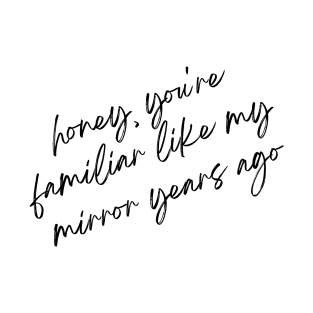 honey, you're
familiar like my
mirror years ago